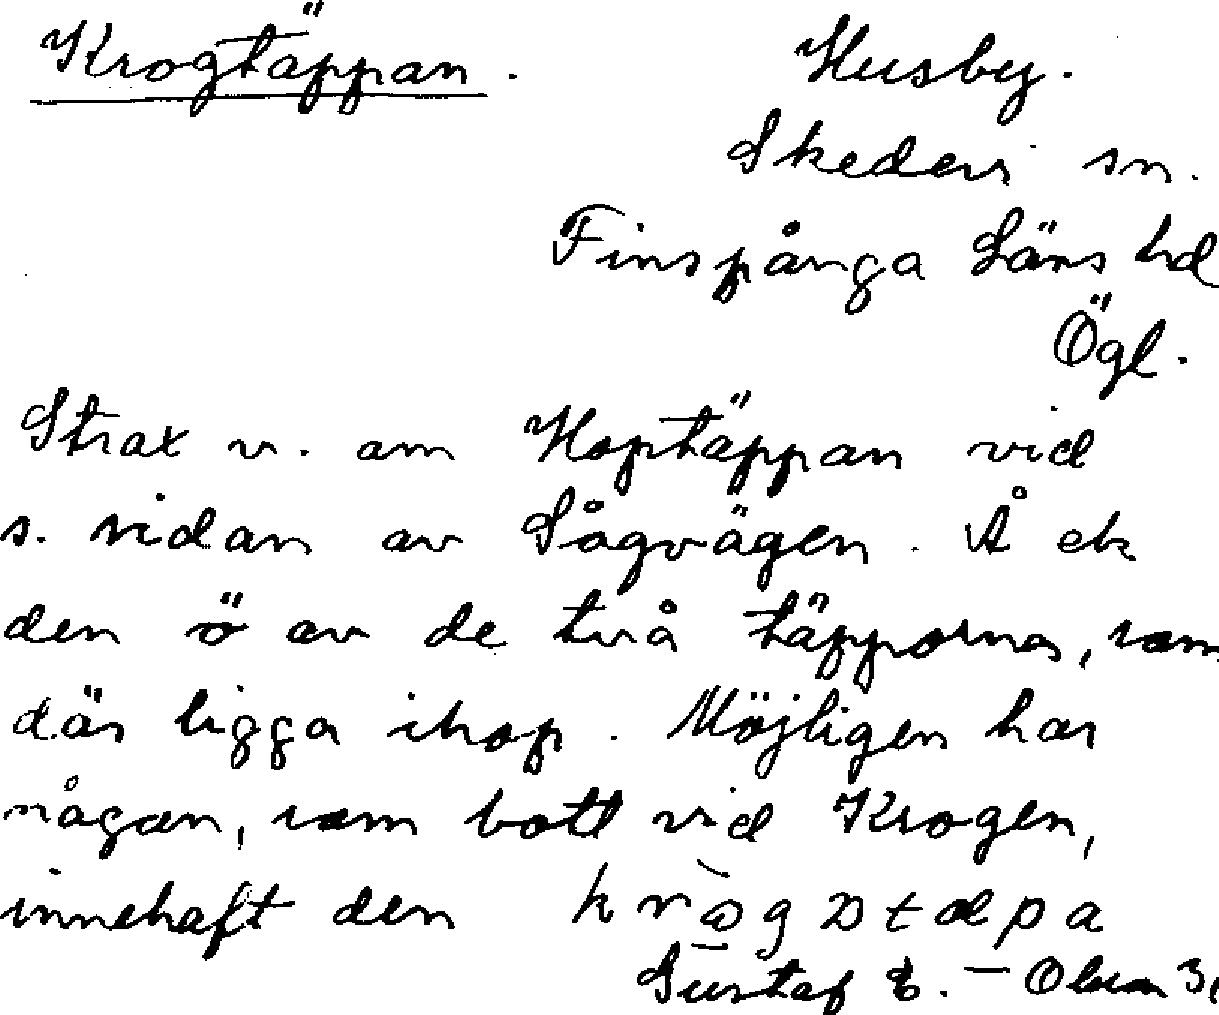 Krogtäppan. Husby.
Skedevi sn.
Finspånga Läns hd
Ögl.
Strax v. om Hoptäppan vid
s. sidan av Sågvägen. Å ek
den ö av de två täpporna, som
där ligga ihop. Möjligen har
någon, som bott vid Krogen,
innehaft den
Gustaf E. - Olson